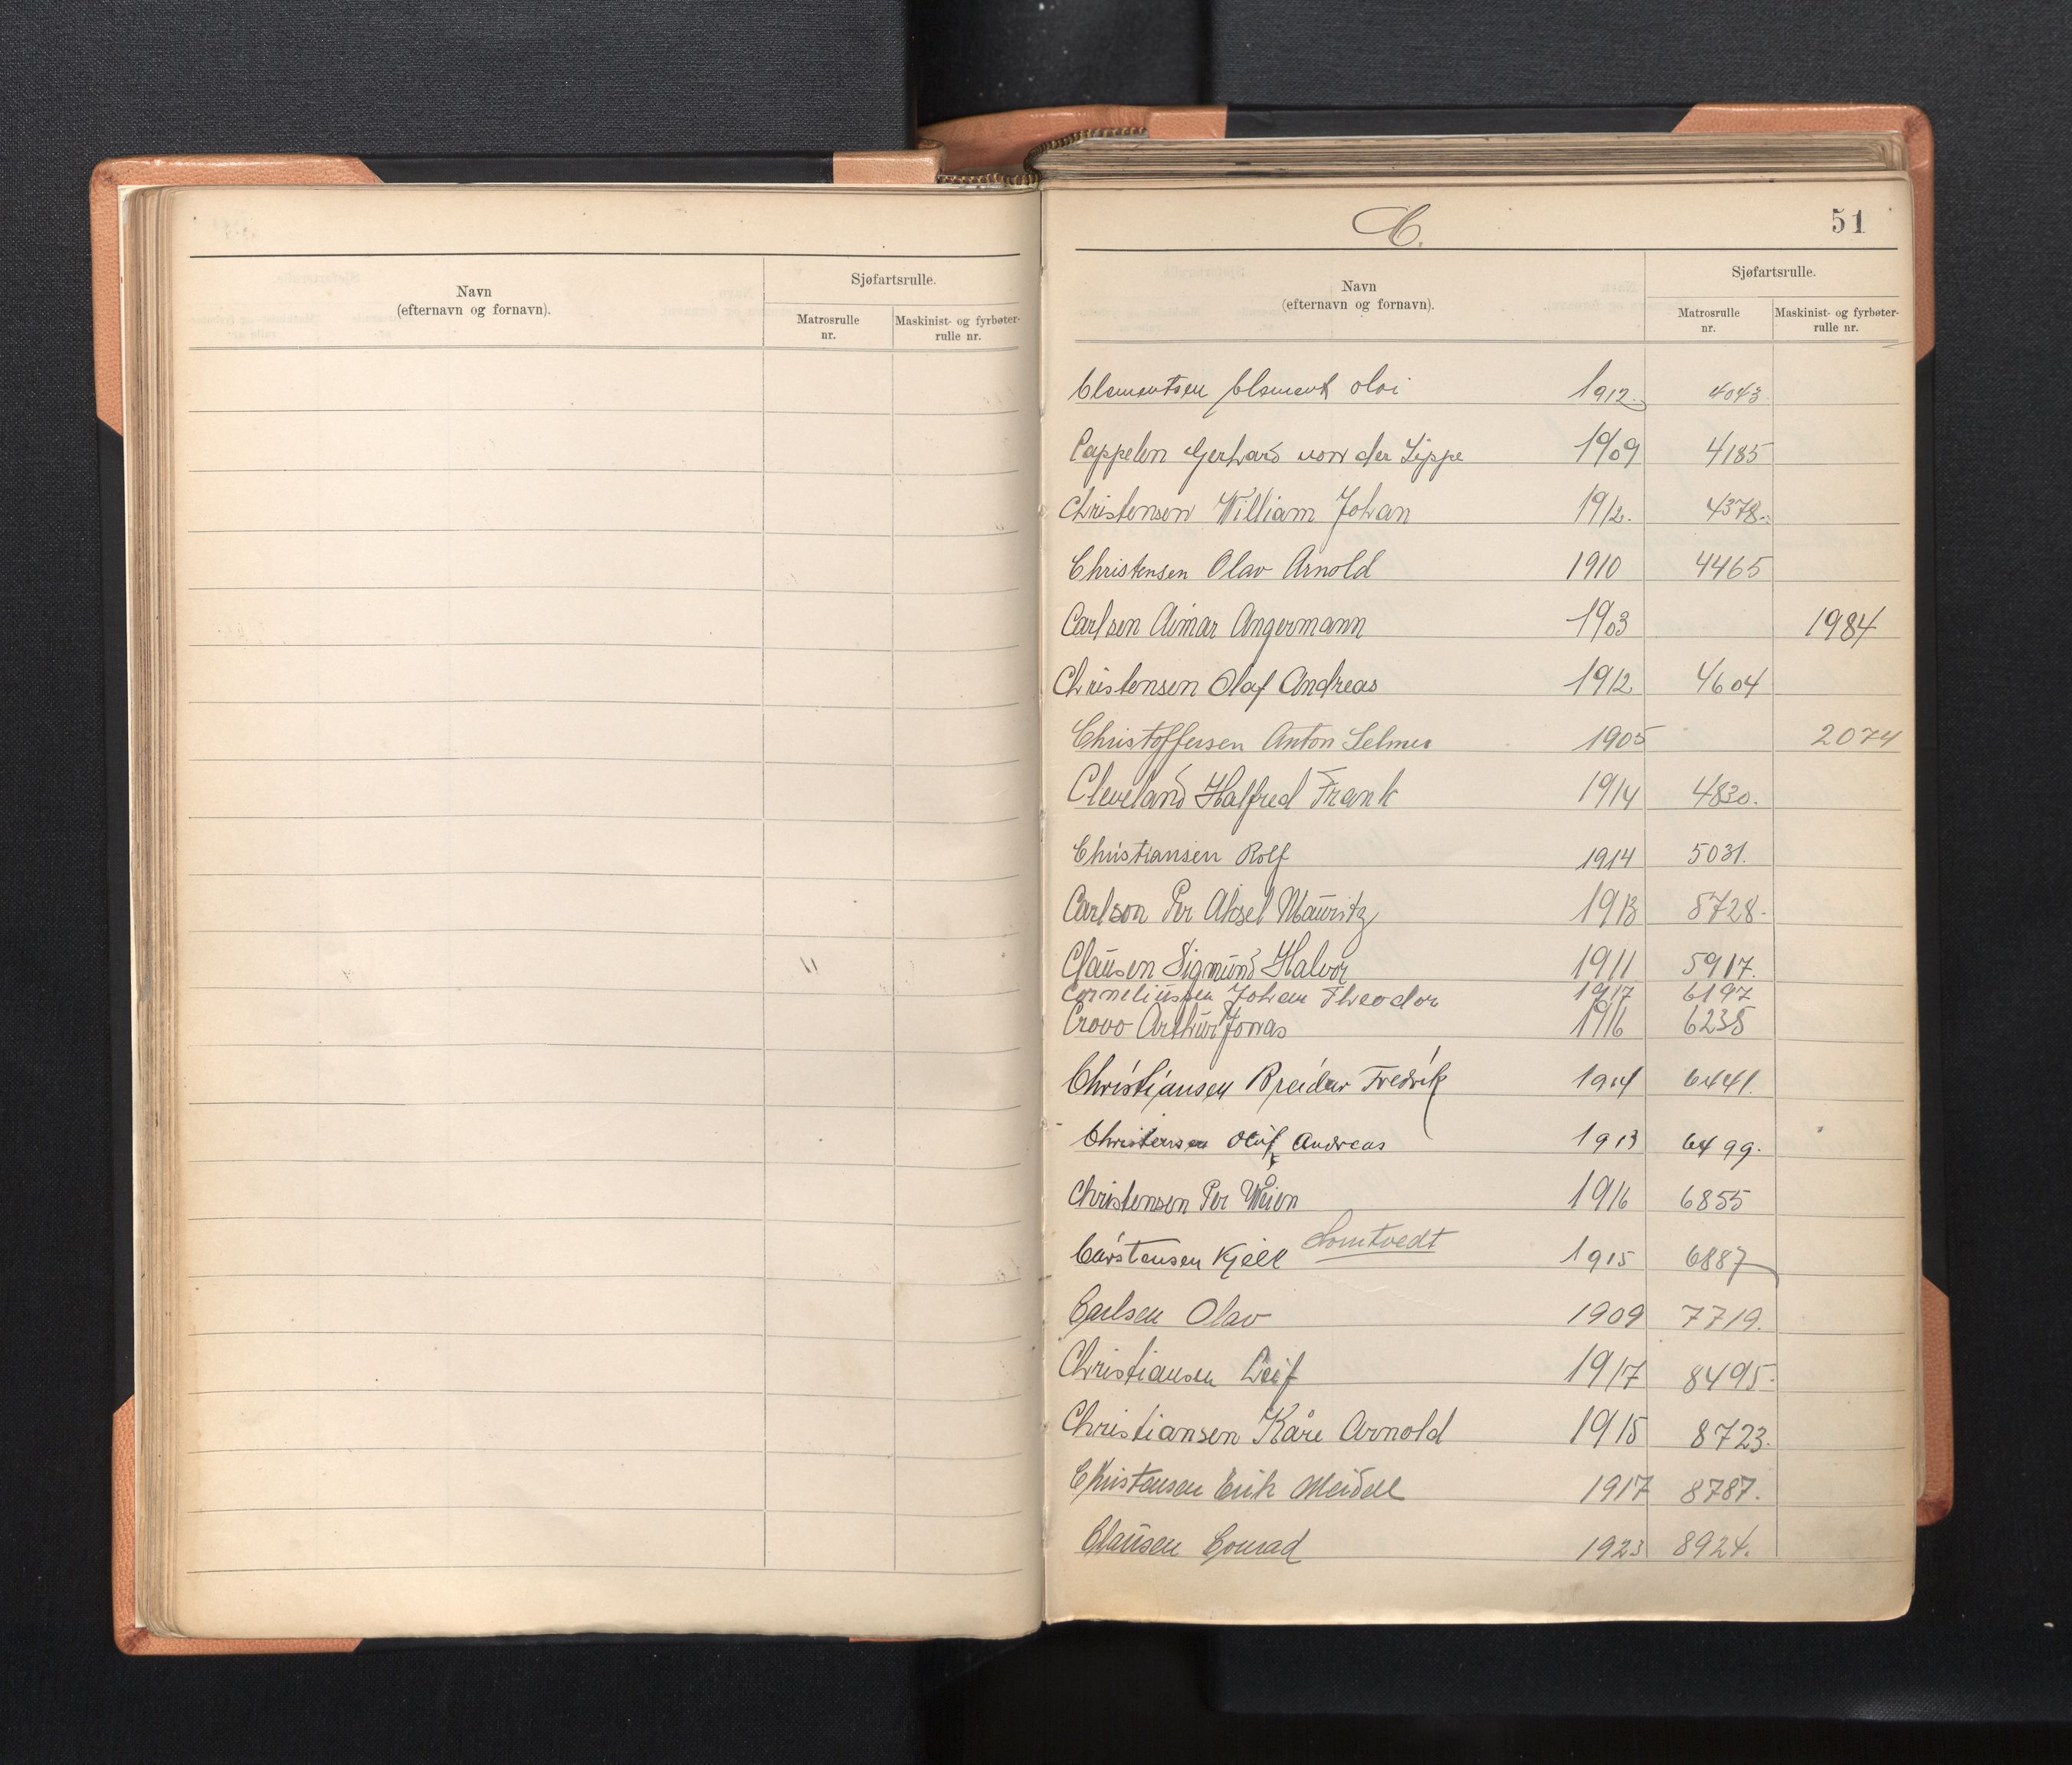 Navn
(efternavn og fornavn).
Sjøfartsrulle.
Matrosrulle
nr.
Maskinist- og fyrbøter-
rulle nr.
C.
51
Navn
(efternavn og fornavn).
Sjøfartsrulle.
Matrosrulle
nr.
Maskinist- og fyrbøter-
rulle nr.
Clementsen Clement Olai 1912. 4043
Cappelen Gerhard von der Lippe 1909 4185
Christensen William Johan 1912. 4378.
Christensen Olav Arnold 1910 4465
Carlsen Aimar Angermann 1903 1984
Christensen Olaf Andreas 1912 4604
Christoffersen Anton Selmer 1905 2074
Cleveland Halfred Frank 1914 4830.
Christiansen Rolf 1914 5031.
Carlson Per Aksel Mauritz 1913 5728.
Clausen Sigmund Halvor 1911 5917.
Corneliussen Johan Theodor 1917 6197
Crovo Arthur Jonas 1916 6235
Christiansen Breidar Fredrik 1914 6441.
Christensen Oluf Andreas 1913 6499.
Christensen Per Weien 1916 6855
Carstensen Kjell Lomtvedt 1915 6887
Carlsen Olav 1909 7719.
Christiansen Leif 1917 8495.
Christiansen Kåre Arnold 1915 8723.
Christensen Erik Meidell 1917 8787.
Clausen Conrad 1923 8924.